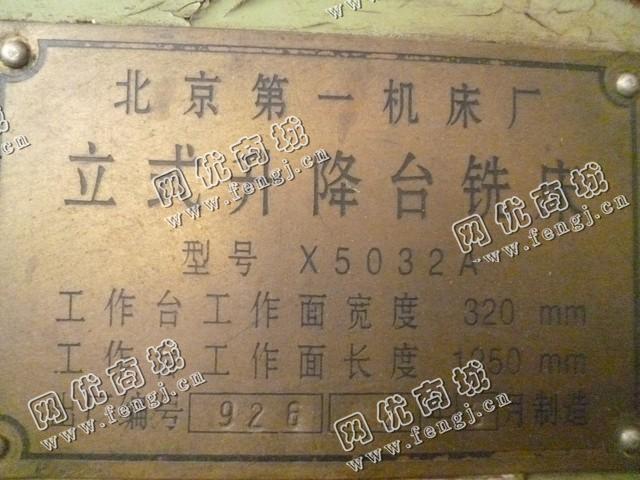 北京第一机床厂
立式升降台铣床
型号 X5032A
工作台工作面宽度 320 mm
工作 工作面长度 mm
编号 月制造
网优商城
www.fengj.cn
网优商城
www.fengj.cn
网优商城
www.fengj.cn
网优商城
www.fengj.cn